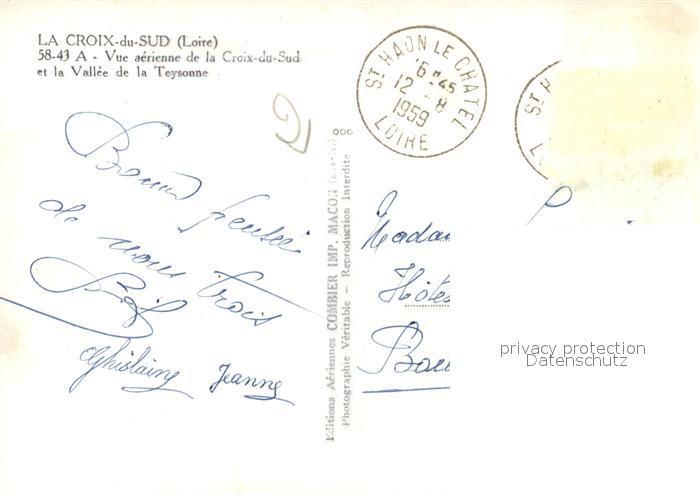 LA CROIX-du-SUD (Loire)
58-43 A - Vue aérienne de la Croix-du-Sud
et la Vallée de la Teysonne
ST HAON LE CHATEL
16H45
12 - 8
1959
LOIRE
ST H
Bonne pensée
de nous trois
Ghislaine Jeanne
Editions Aériennes COMBIER IMP. MACON
Photographie Véritable - Reproduction Interdite
Madam
Hôtel
privacy protection
Datenschutz